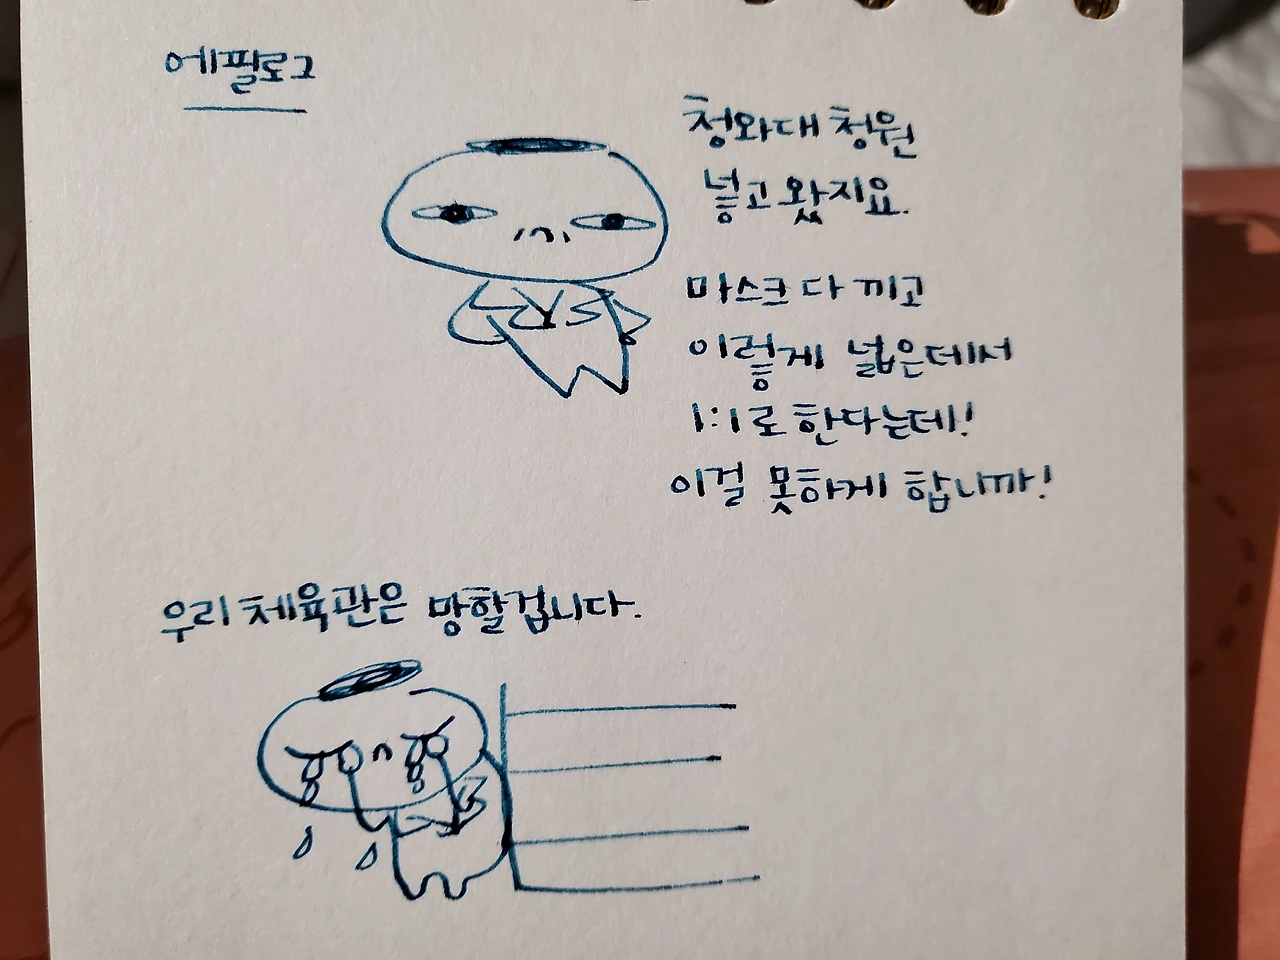 에필로그
청와대 청원
넣고 왔지요.
마스크 다 끼고
이렇게 넓은데서
1:1로 한다는데!
이걸 못하게 합니까!
우리 체육관은 망할겁니다.